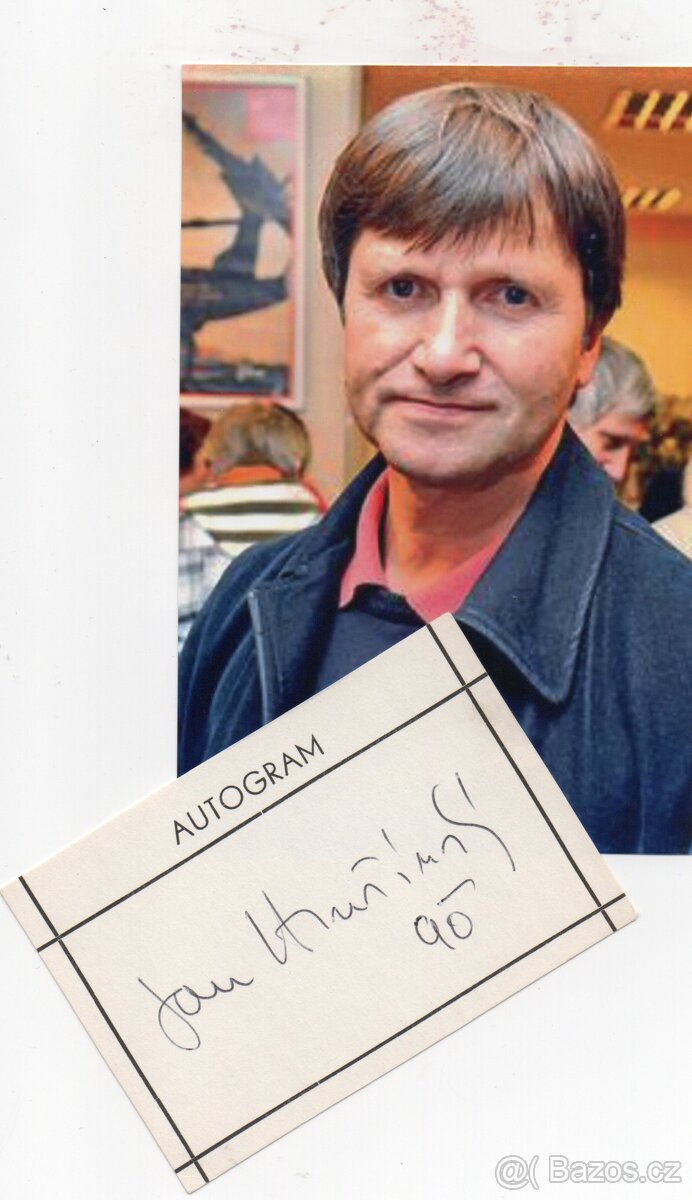 AUTOGRAM
Jan Hrušínský
90
@( Bazos.cz